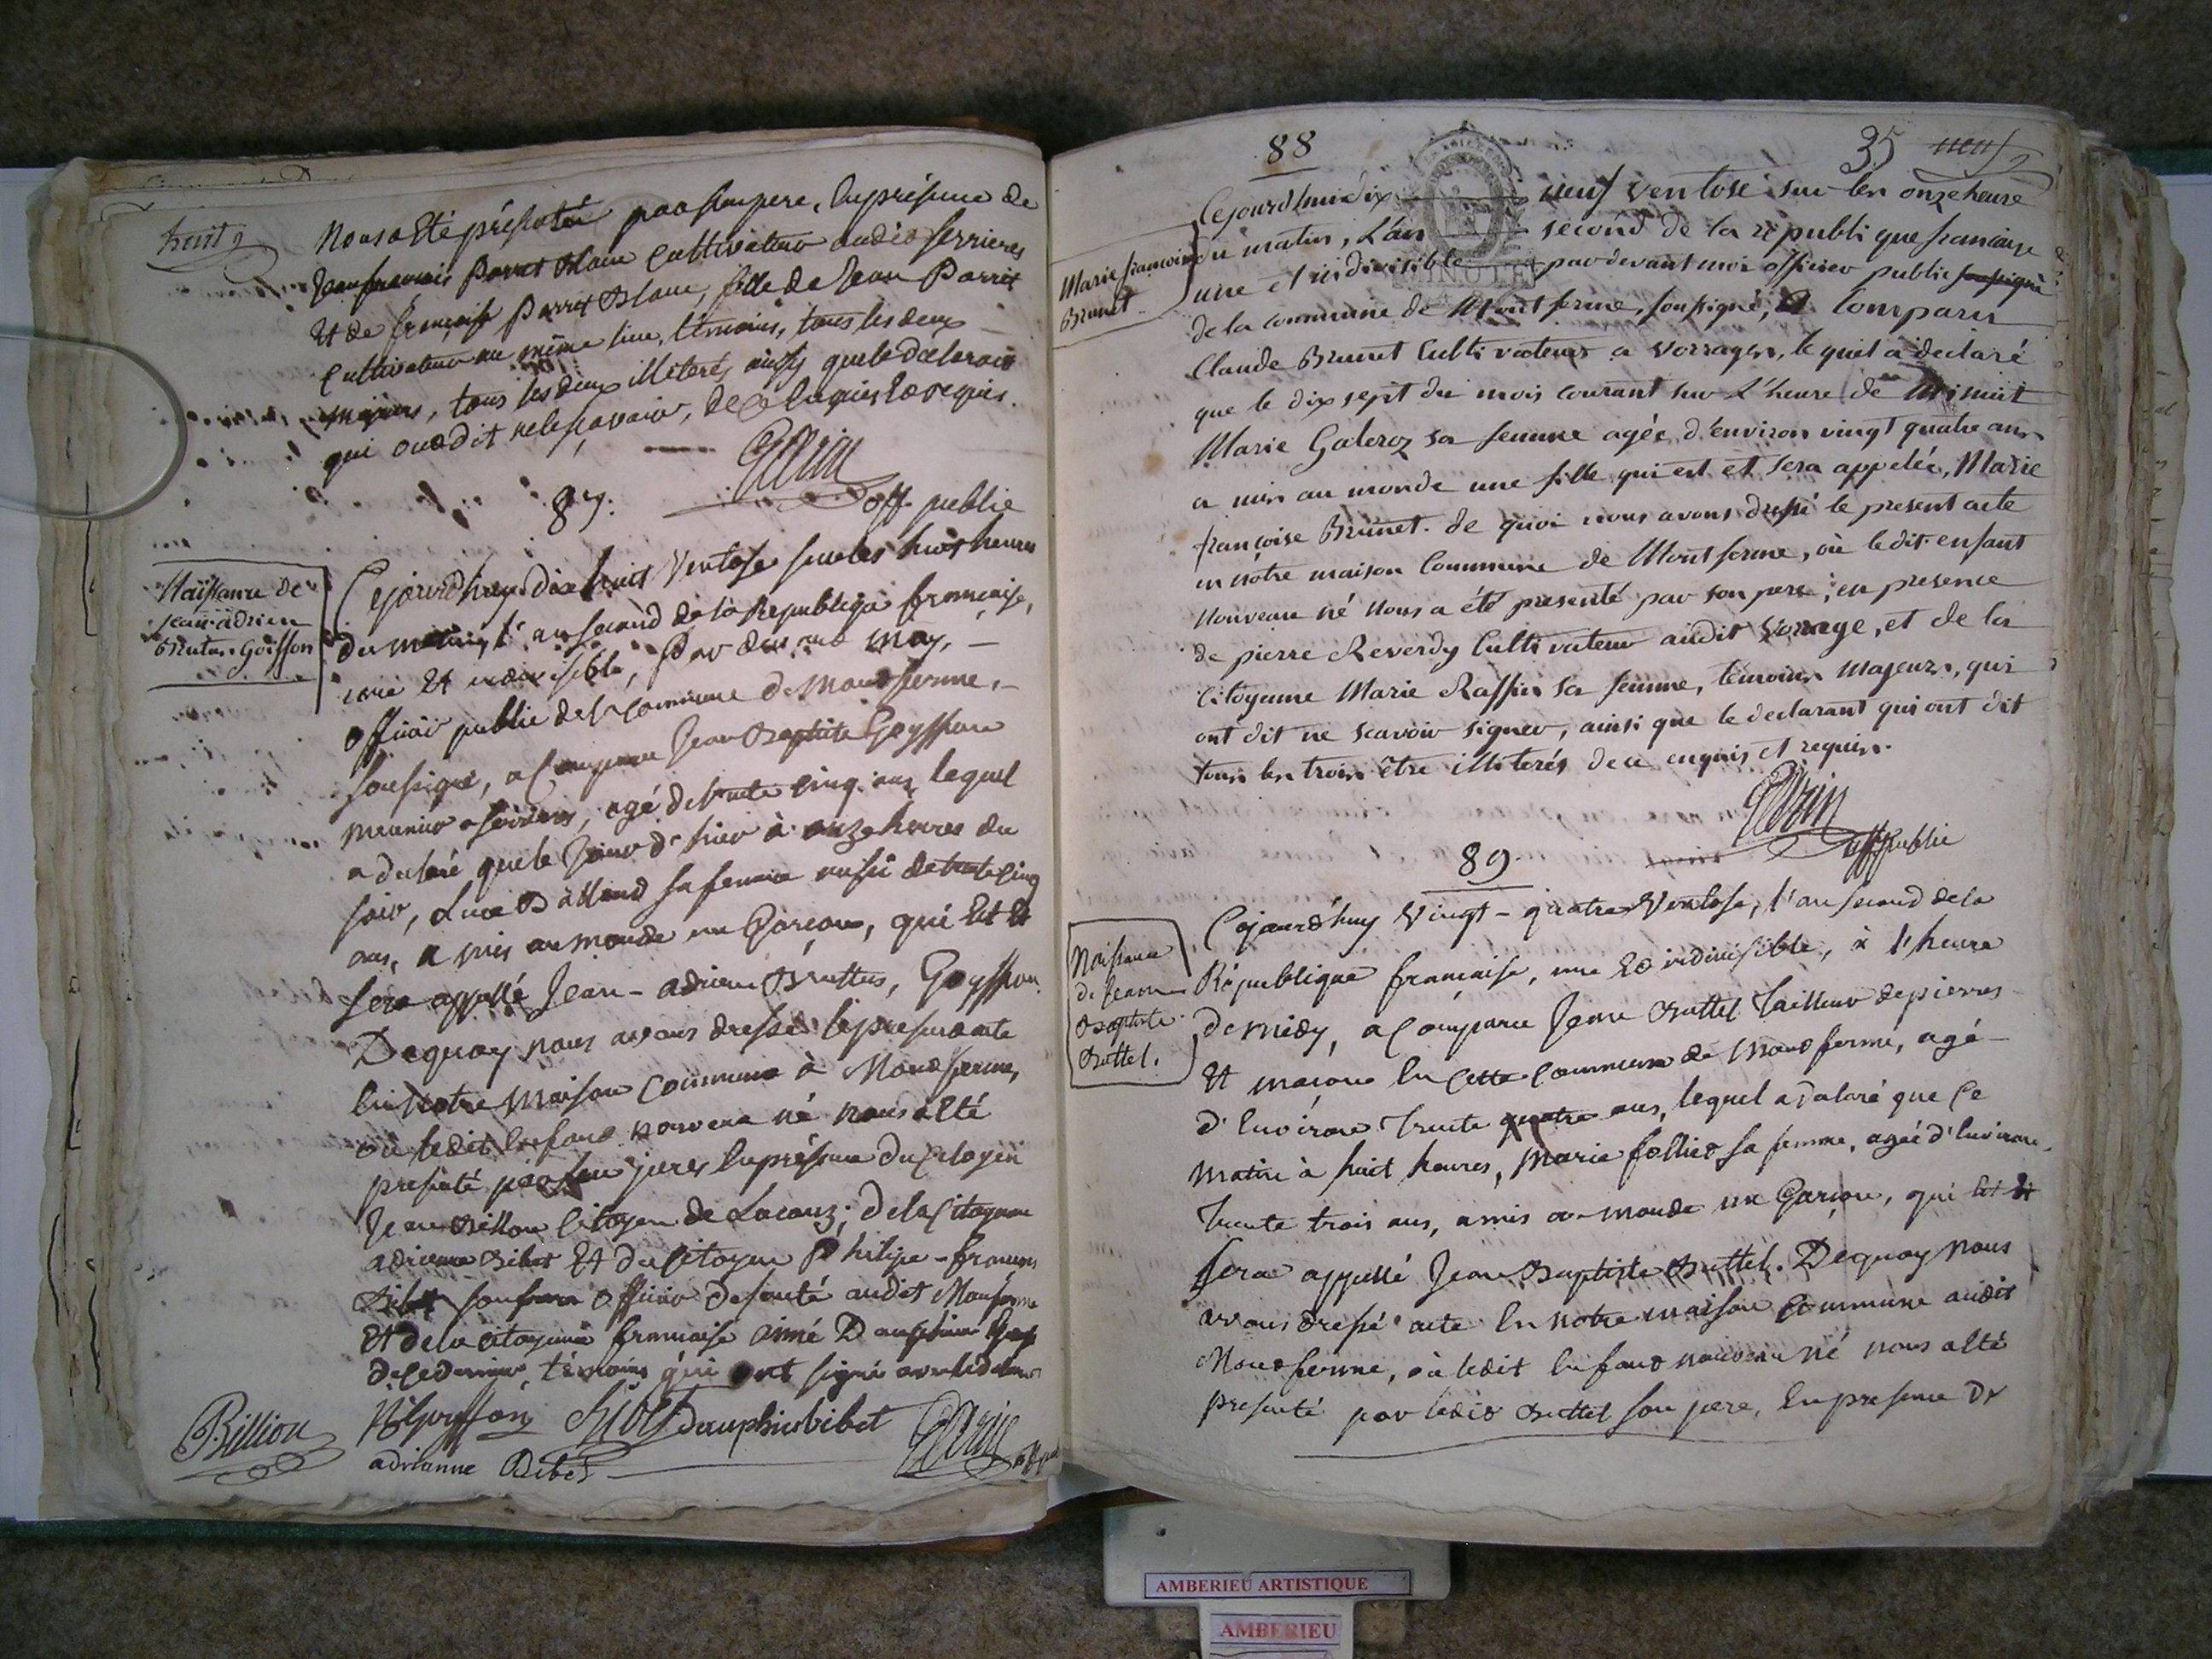 huit
Nous a été présenté par son pere, En présence de
Jean françois Parret Blanc Cultivateur audit Serrieres
Et de françoise Parret Blanc, fille de Jean Parret
Cultivateur au même lieu, témoins, tous les deux
majeurs, tous les deux illiterés ainsy que le déclarant
qui ont dit ne le sçavoir, de ce Enquis Et requis.
off. public
87.
Naissance de
jean adrien
Brutus Goiffon
Cejourd'huy dix huit Ventose sur les huit heures
du matin, l'an second de la Republique française,
une Et indivisible, Par devant moy,
officier public de la Commune de Montferme,
soussigné, a Comparu Jean Baptiste Goyffon
meunier a Serrieres, agé de trente cinq ans, lequel
a declaré que le Jour d'hier à onze heures du
soir, sa femme aussi de trente cinq
ans, a mis au monde un Garçon, qui Est Et
sera appellé Jean-adrien Bruttus, Goyffon.
Dequoy nous avons dressé le present acte
En Notre Maison Commune à Montferme,
où ledit Enfant nouveau né nous a été
presenté par son pere, En présence du Citoyen
Jean Billion Citoyen de ; de la Citoyenne
adrienne Bibet Et du Citoyen Philipe-françois
Bibet officier de santé audit Monferme
Et de la citoyenne françoise aimé Dauphin
de ce dernier, témoins qui ont signé avec le declarant
Billion Goyffon Bibet Dauphin bibet
adrianne Bibet
88
35 neuf
Marie françoise
Brunet
Cejourd'hui dix neuf ventose sur les onze heure
du matin, L'an second de la republique francaise
une et indivisible par devant moi officier public soussigné
de la commune de Montferme, soussigné, a Comparu
Claude Brunet Cultivateur a Vorrages, lequel a declaré
que le dix sept du mois courant sur L'heure de minuit
Marie Galeroz sa femme agée d'environ vingt quatre ans
a mis au monde une fille qui est et sera appelée, Marie
françoise Brunet. de quoi nous avons dressé le present acte
en nôtre maison Commune de Montferme, où ledit enfant
nouveau né nous a été presenté par son pere; en presence
de pierre Reverdy Cultivateur audit Vorrage, et de la
Citoyenne Marie Raffin sa femme, témoins Majeurs, qui
ont dit ne scavoir signer, ainsi que le declarant qui ont dit
tous les trois être illiterés de ce enquis et requis.
off public
89.
Naissance
de Jean
Baptiste
Buttel.
Cejourd'huy Vingt-quatre Ventose, l'an second de la
République française, une Et indivisible, à l'heure
de midy, a Comparu Jean Buttel Tailleur de pierres
Et maçon En cette Commune de Montferme, agé
d'Environ Trente quatre ans, lequel a declaré que Ce
matin à huit heures, Marie follies sa femme, agée d'Environ
Trente trois ans, a mis au monde un Garçon, qui Est Et
sera appellé Jean Baptiste Buttel. Dequoy nous
avons dressé acte En Notre maison Commune audit
Montferme, où ledit Enfant nouveau né nous a été
presenté par ledit Buttel son pere, En presence de
AMBERIEU ARTISTIQUE
AMBERIEU